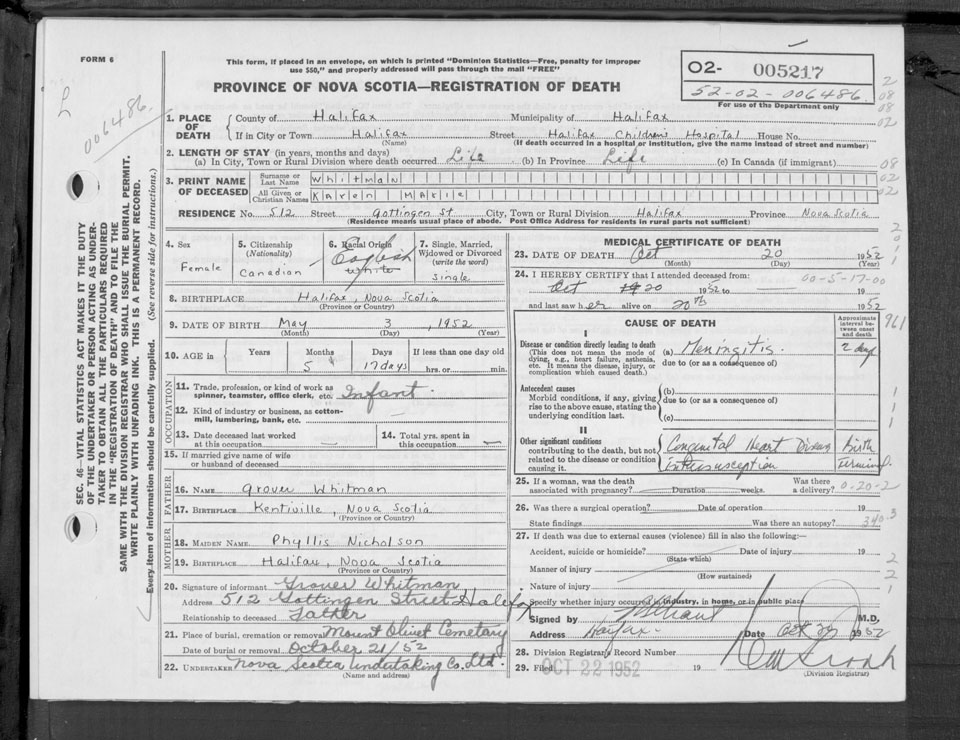 FORM 6
This form, if placed in an envelope, on which is printed "Dominion Statistics—Free, penalty for improper
use $50," and properly addressed will pass through the mail "FREE"
PROVINCE OF NOVA SCOTIA—REGISTRATION OF DEATH
02- 005217
52-02-006486
For use of the Department only
006486.
SEC. 46—VITAL STATISTICS ACT MAKES IT THE DUTY
OF THE UNDERTAKER OR PERSON ACTING AS UNDER-
TAKER TO OBTAIN ALL THE PARTICULARS REQUIRED
IN THE "REGISTRATION OF DEATH" AND TO FILE THE
SAME WITH THE DIVISION REGISTRAR WHO SHALL ISSUE THE BURIAL PERMIT.
WRITE PLAINLY WITH UNFADING INK. THIS IS A PERMANENT RECORD.
Every item of information should be carefully supplied. (See reverse side for instructions.)
1. PLACE OF DEATH
County of Halifax Municipality of Halifax
If in City or Town Halifax Street Halifax Children's Hospital House No.
(Name) (If death occurred in a hospital or institution, give the name instead of street and number)
2. LENGTH OF STAY (in years, months and days)
(a) In City, Town or Rural Division where death occurred Life (b) In Province Life (c) In Canada (if immigrant)
3. PRINT NAME OF DECEASED
Surname or Last Name Whitman
All Given or Christian Names Karen Marie
RESIDENCE No. 512 Street Gottingen St City, Town or Rural Division Halifax Province Nova Scotia
(Residence means usual place of abode. Post Office Address for residents in rural parts not sufficient)
4. Sex Female
5. Citizenship (Nationality) Canadian
6. Racial Origin English White
7. Single, Married, Widowed or Divorced (write the word) Single
8. BIRTHPLACE Halifax, Nova Scotia
(Province or Country)
9. DATE OF BIRTH May 3, 1952
(Month) (Day) (Year)
10. AGE in Years Months 5 Days 17 days If less than one day old hrs. or min.
OCCUPATION
11. Trade, profession, or kind of work as spinner, teamster, office clerk, etc. Infant
12. Kind of industry or business, as cotton-mill, lumbering, bank, etc. —
13. Date deceased last worked at this occupation —
14. Total yrs. spent in this occupation —
15. If married give name of wife or husband of deceased
FATHER
16. NAME Grover Whitman
17. BIRTHPLACE Kentville, Nova Scotia
(Province or Country)
MOTHER
18. MAIDEN NAME Phyllis Nicholson
19. BIRTHPLACE Halifax, Nova Scotia
(Province or Country)
20. Signature of informant Grover Whitman
Address 512 Gottingen Street Halifax
Relationship to deceased Father
21. Place of burial, cremation or removal Mount Olivet Cemetary
Date of burial or removal October 21/52
22. UNDERTAKER Nova Scotia Undertaking Co. Ltd.
(Name and address)
MEDICAL CERTIFICATE OF DEATH
23. DATE OF DEATH Oct 20 1952
(Month) (Day) (Year)
24. I HEREBY CERTIFY that I attended deceased from: 00-5-17-00
Oct 20 1952 to 19
and last saw her alive on 20th 1952
CAUSE OF DEATH
Approximate interval between onset and death
I
Disease or condition directly leading to death
(This does not mean the mode of dying, e.g., heart failure, asthenia, etc. It means the disease, injury, or complication which caused death.)
(a) Meningitis. 2 day
due to (or as a consequence of)
Antecedent causes
Morbid conditions, if any, giving rise to the above cause, stating the underlying condition last.
(b)
due to (or as a consequence of)
(c)
II
Other significant conditions contributing to the death, but not related to the disease or condition causing it.
Congenital Heart Disease Birth
Intussusception terminal.
25. If a woman, was the death associated with pregnancy? Duration weeks. Was there a delivery? 0-20-2
26. Was there a surgical operation? Date of operation 19
State findings Was there an autopsy? 340.3
27. If death was due to external causes (violence) fill in also the following:—
Accident, suicide or homicide? Date of injury 19
(State which)
Manner of injury
(How sustained)
Nature of injury
Specify whether injury occurred in industry, in home, or in public place
Signed by M.D.
Address Halifax. Date Oct 20 1952
28. Division Registrar's Record Number
29. Filed OCT 22 1952 19
(Division Registrar)
961